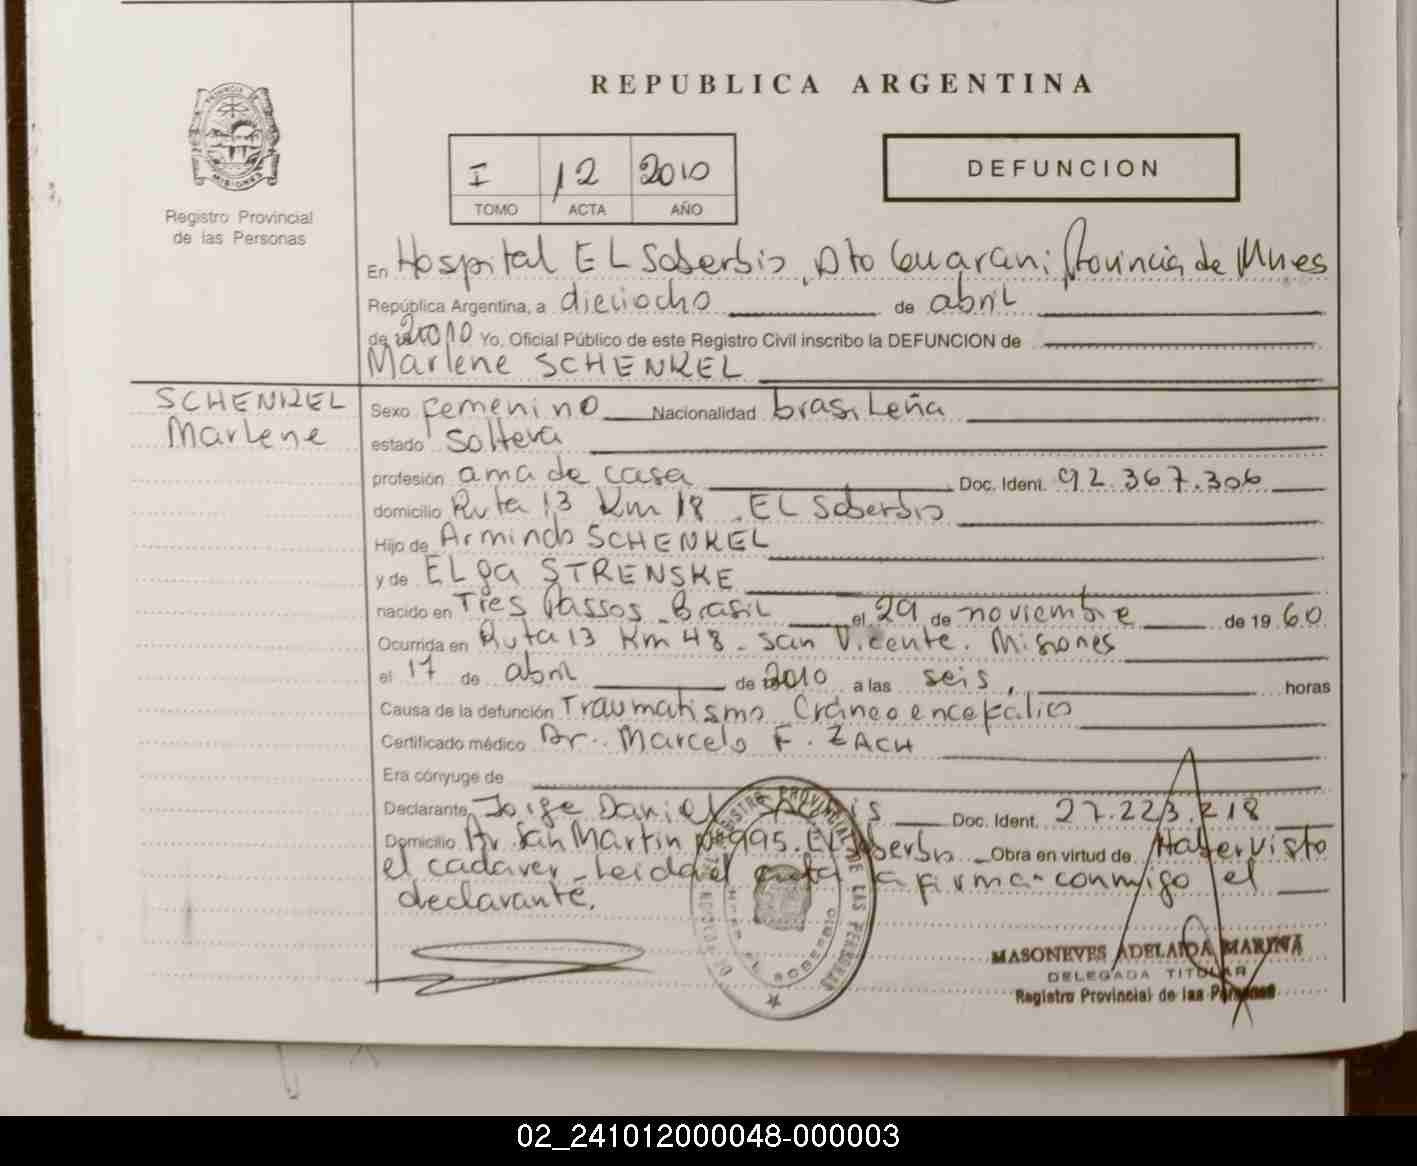 REPUBLICA ARGENTINA
I 12 2010
TOMO ACTA AÑO
DEFUNCION
PROVINCIA DE
MISIONES
Registro Provincial
de las Personas
En Hospital EL Soberbio, Dto Guarani Provincia de Mnes
República Argentina, a dieciocho de abril
de 2010 Yo, Oficial Público de este Registro Civil inscribo la DEFUNCION de
Marlene SCHENKEL
SCHENKEL
Marlene
Sexo femenino Nacionalidad brasileña
estado soltera
profesión ama de casa Doc. Ident. 92.367.306
domicilio Ruta 13 Km 18 - EL Soberbio
Hijo de Armindo SCHENKEL
y de ELga STRENSKE
nacido en Tres Passos - Brasil el 29 de noviembre de 1960
Ocurrida en Ruta 13 Km 48 - San Vicente. Misiones
el 17 de abril de 2010 a las seis, horas
Causa de la defunción Traumatismo Cráneo encefalico
Certificado médico Dr. Marcelo F. ZACH
Era cónyuge de
Declarante Jorge Daniel Doc. Ident. 27.223.218
Domicilio Av. San Martin Nº 995. EL Soberbio - Obra en virtud de Haber visto
el cadaver - Leida el acta la firma conmigo el
declarante.
REGISTRO PROVINCIAL DE LAS PERSONAS
EL SOBERBIO
MASONEVES ADELAIDA MARINA
DELEGADA TITULAR
Registro Provincial de las Personas
02_241012000048-000003